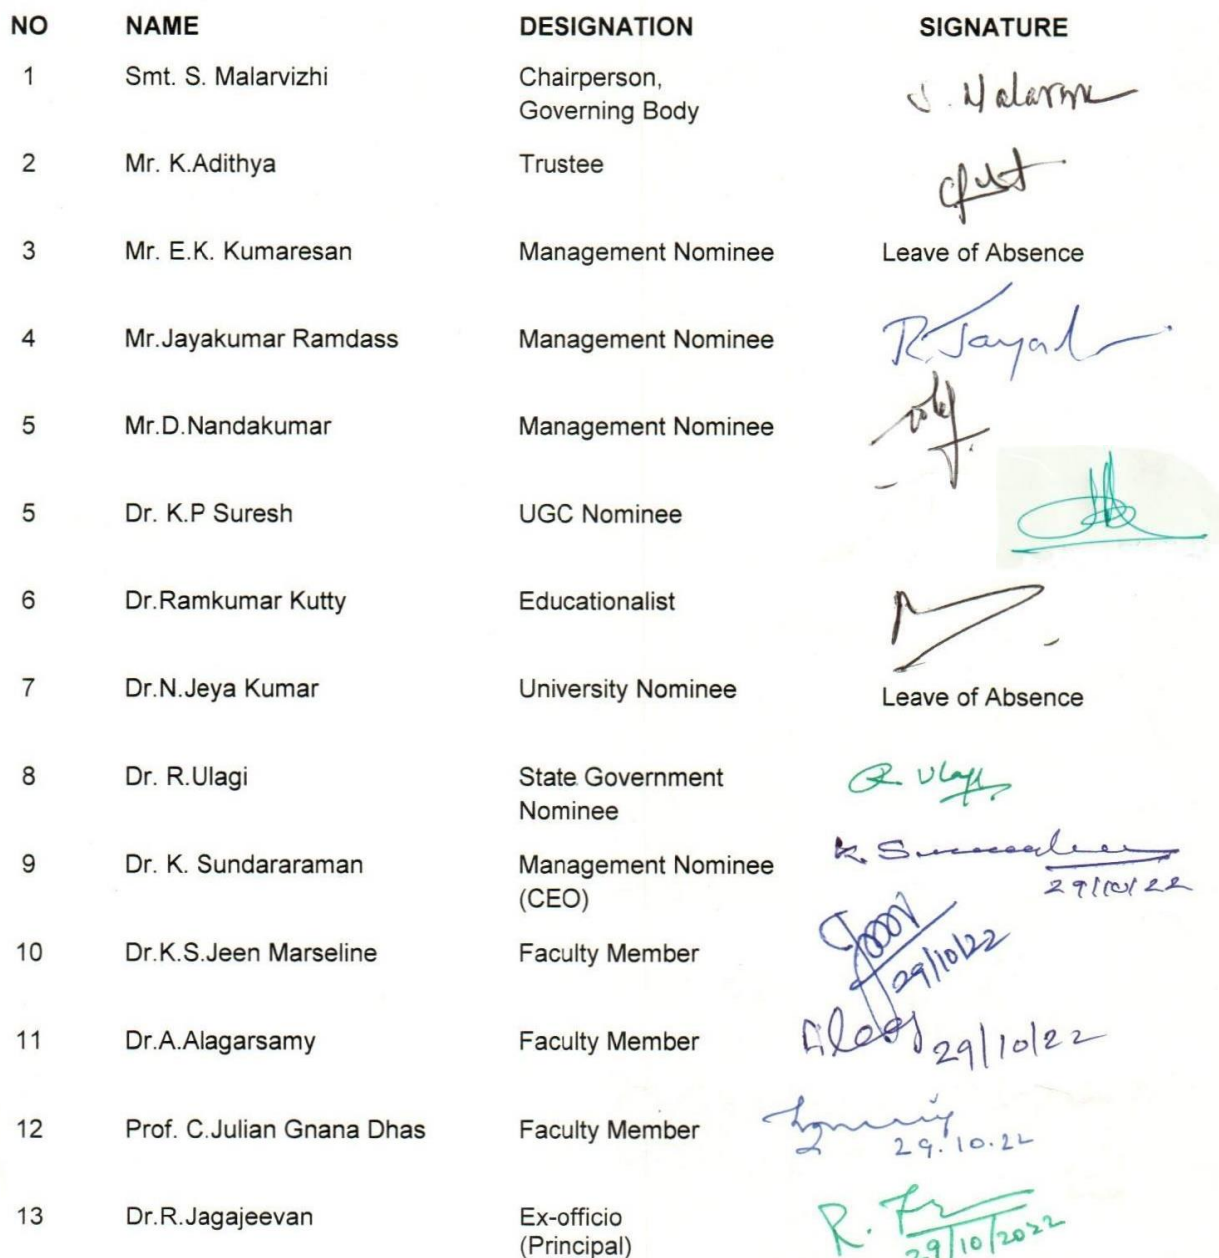 NO NAME DESIGNATION SIGNATURE
1 Smt. S. Malarvizhi Chairperson,
Governing Body
2 Mr. K.Adithya Trustee
3 Mr. E.K. Kumaresan Management Nominee Leave of Absence
4 Mr.Jayakumar Ramdass Management Nominee
5 Mr.D.Nandakumar Management Nominee
5 Dr. K.P Suresh UGC Nominee
6 Dr.Ramkumar Kutty Educationalist
7 Dr.N.Jeya Kumar University Nominee Leave of Absence
8 Dr. R.Ulagi State Government
Nominee
9 Dr. K. Sundararaman Management Nominee
(CEO) 29/10/22
10 Dr.K.S.Jeen Marseline Faculty Member
29/10/22
11 Dr.A.Alagarsamy Faculty Member 29/10/22
12 Prof. C.Julian Gnana Dhas Faculty Member
29.10.22
13 Dr.R.Jagajeevan Ex-officio
(Principal) 29/10/2022